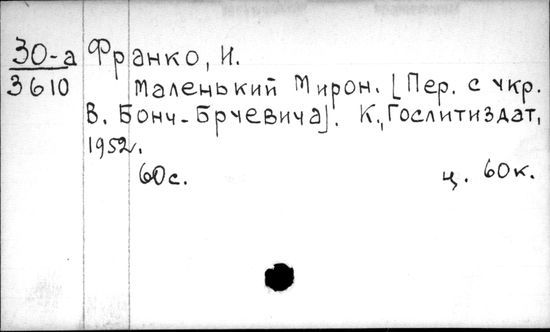 30-а Франко, И.
3610 Маленький Мирон. [Пер. с укр.
В. Бонч-Бруевича]. К., Гослитиздат,
1952.
60с. ц. 60к.